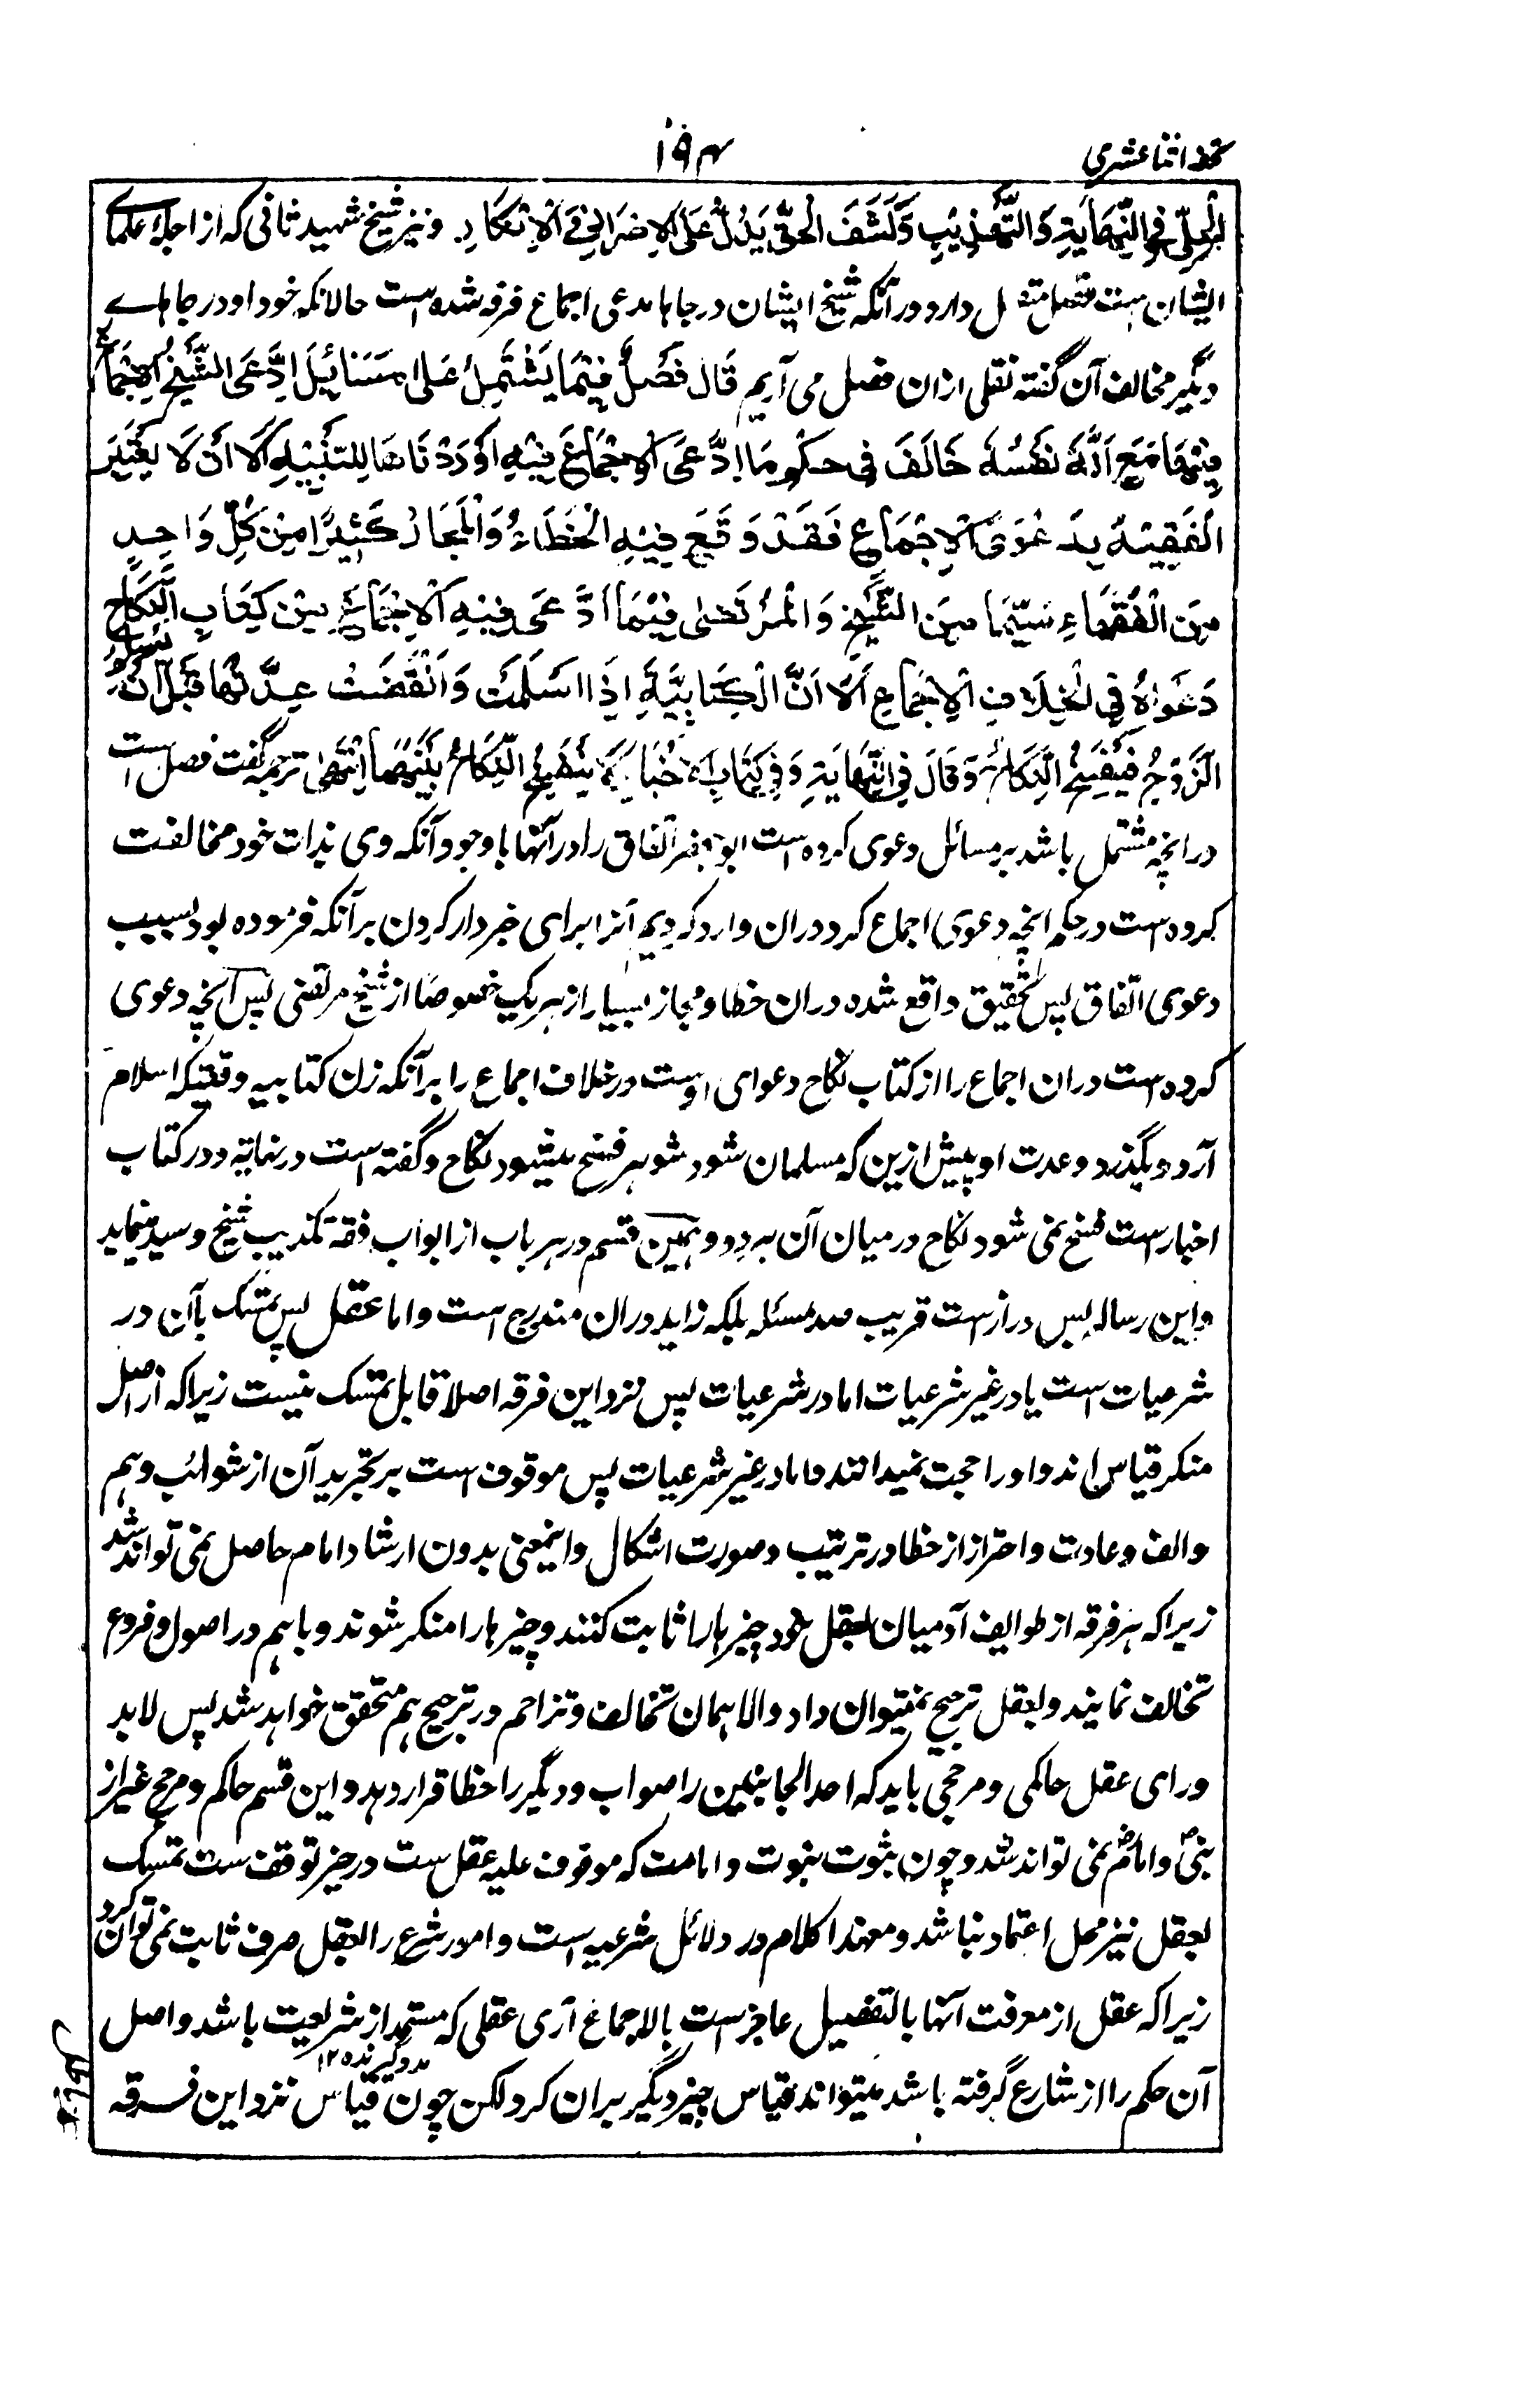 تحفه اثنا عشری
۱۹۴
الحلی فی النِّهَایَةِ وَالتَّهْذِیْبِ وَکَشْفَ الْحَقِّ یَدُلُّ عَلَی الْاِصْرَارِ فِی الْاِنْکَارِ. ونیز شیخ شهید ثانی که از اجلاء علمای
ایشان ست دارد در آنکه شیخ ایشان در جاها مدعی اجماع فرقه شده است حالانکه خود او در جاهای
دیگر مخالف آن گفته نقلی ازان فصل می آریم قَالَ فَصْلٌ فِیْمَا یَشْتَمِلُ عَلٰی مَسَائِلَ اِدَّعَی الشَّیْخُ الْاِجْمَاعَ
فِیْهَا مَعَ اَنَّهٗ نَفْسُهٗ خَالَفَ فِی حُکْمِ مَا ادَّعَی الْاِجْمَاعَ فِیْهِ اَوْرَدْنَاهَا لِلتَّنْبِیْهِ اَلَا اَنْ لَا یَغْتَرَّ
الْفَقِیْهُ بِدَعْوَی الْاِجْمَاعِ فَقَدْ وَقَعَ فِیْهِ الْخَطَاءُ وَالْمَجَازُ کَثِیْرًا مِنْ کُلِّ وَاحِدٍ
مِنَ الْفُقَهَاءِ سِیَّمَا مِنَ الشَّیْخِ وَالْمُرْتَضٰی فِیْمَا ادَّعٰی فِیْهِ الْاِجْمَاعَ مِنْ کِتَابِ النِّکَاحِ
دَعْوَاهُ فِی الْخِلَافِ الْاِجْمَاعِ اَلَا اَنَّ الْکِتَابِیَّةَ اِذَا اسْلَمَتْ وَانْقَضَتْ عِدَّتُهَا قَبْلَ اَنْ یُسْلِمَ
الزَّوْجُ فَیُفْسَخُ النِّکَاحُ وَقَالَ فِی النِّهَایَةِ وَفِی کِتَابِ الْاَخْبَارِ لَا یَنْفَسِخُ النِّکَاحُ بَیْنَهُمَا اِنْتَهٰی ترجمه گفت فصل است
درانچه مشتمل باشد بر مسائل دعوی کرده است ابو جعفر اتفاق را در آنها باوجود آنکه وی بذات خود مخالفت
کرده ست در حکم انچه دعوی اجماع کرد دران وارد کردیم آنرا برای خبردار کردن بر آنکه فرموده بود بسبب
دعوی اتفاق پس تحقیق واقع شده دران خطا و مجاز بسیار از هر یک خصوصاً از شیخ مرتضی پس انچه دعوی
کرده ست دران اجماع را از کتاب نکاح دعوای اوست در خلاف اجماع را بر آنکه زن کتابیه وقتیکه اسلام
آرد و بگذرد وعدت او پیش ازین که مسلمان شود شوهر فسخ میشود نکاح و گفته است در نهایة و در کتاب
اخبار ست فسخ نمی شود نکاح درمیان آن هر دو و همین قسم در هر باب از ابواب فقه تکذیب شیخ و سید مینماید
واین رساله بس دراز ست قریب صد مسئله بلکه زاید دران مندرج است و اما عقل پس تمسک بآن در
شرعیات ست یا در غیر شرعیات اما در شرعیات پس نزد این فرقه اصلا قابل تمسک نیست زیرا که از اصل
منکر قیاس اند و او را حجت نمیدانند و اما در غیر شرعیات پس موقوف است بر تجرید آن از شوائب وهم
والف وعادت و احتراز از خطا در ترتیب وصورت اشکال واینمعنی بدون ارشاد امام حاصل نمی تواند شد
زیرا که هر فرقه از طوایف آدمیان بعقل خود چیزها را ثابت کنند و چیزها را منکر شوند و باهم در اصول و فروع
تخالف نمایند و بعقل ترجیح نمیتوان داد والا همان تخالف و تزاحم در ترجیح هم متحقق خواهد شد پس لابد
ورای عقل حاکمی و مرجحی باید که احد الجانبین را صواب و دیگر را خطا قرار دهد و این قسم حاکم و مرجح غیر از
نبیؐ و امامؑ نمی تواند شد و چون ثبوت نبوت و امامت که موقوف علیه عقل ست در حیز توقف ست تمسک
بعقل نیز محل اعتماد نباشد ومعهذا کلام در دلائل شرعیه است و امور شرع را بعقل صرف ثابت نمی توان کرد
زیرا که عقل از معرفت آنها بالتفصیل عاجز ست بالاجماع آری عقلی که مستمد از شریعت باشد و اصل
مدد گیرنده ۱۲
آن حکم را از شارع گرفته باشد میتواند قیاس چیز دیگر بران کرد لکن چون قیاس نزد این فرقه